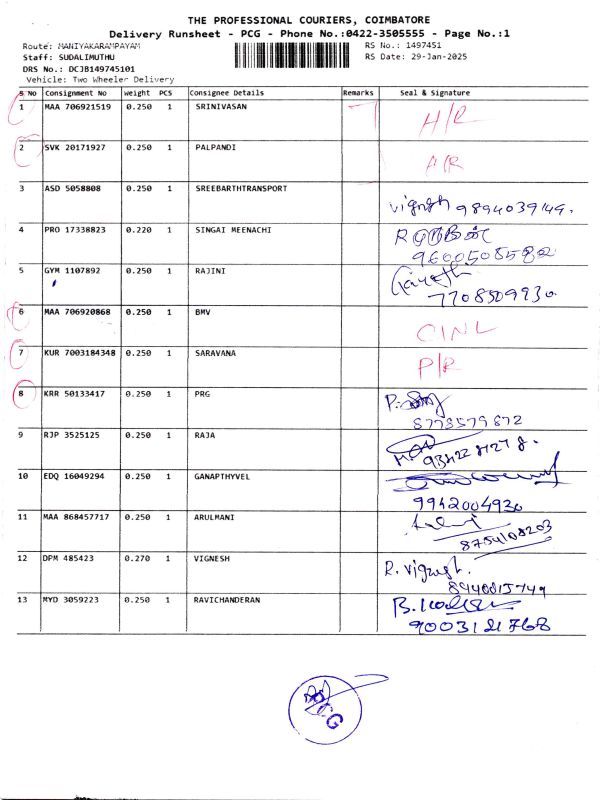 THE PROFESSIONAL COURIERS, COIMBATORE
Delivery Runsheet - PCG - Phone No.:0422-3505555 - Page No.:1
Route: MANIYAKARAMPAYAM RS No.: 1497451
Staff: SUDALIMUTHU RS Date: 29-Jan-2025
DRS No.: DCJB149745101
Vehicle: Two Wheeler Delivery
S No Consignment No weight PCS Consignee Details Remarks Seal & Signature
1 MAA 706921519 0.250 1 SRINIVASAN H/R
2 SVK 20171927 0.250 1 PALPANDI A/R
3 ASD 5058808 0.250 1 SREEBARTHTRANSPORT Vignesh 9894039149.
4 PRO 17338823 0.220 1 SINGAI MEENACHI
9600508582
5 GYM 1107892 0.250 1 RAJINI
7708509930
6 MAA 706920868 0.250 1 BMV CINL
7 KUR 7003184348 0.250 1 SARAVANA P/R
8 KRR 50133417 0.250 1 PRG
8778579872
9 RJP 3525125 0.250 1 RAJA
10 EDQ 16049294 0.250 1 GANAPTHYVEL
9942004930
11 MAA 868457717 0.250 1 ARULMANI
8754108203
12 DPM 485423 0.270 1 VIGNESH R. Vignesh.
13 MYD 3059223 0.250 1 RAVICHANDERAN
9003121768
PCG